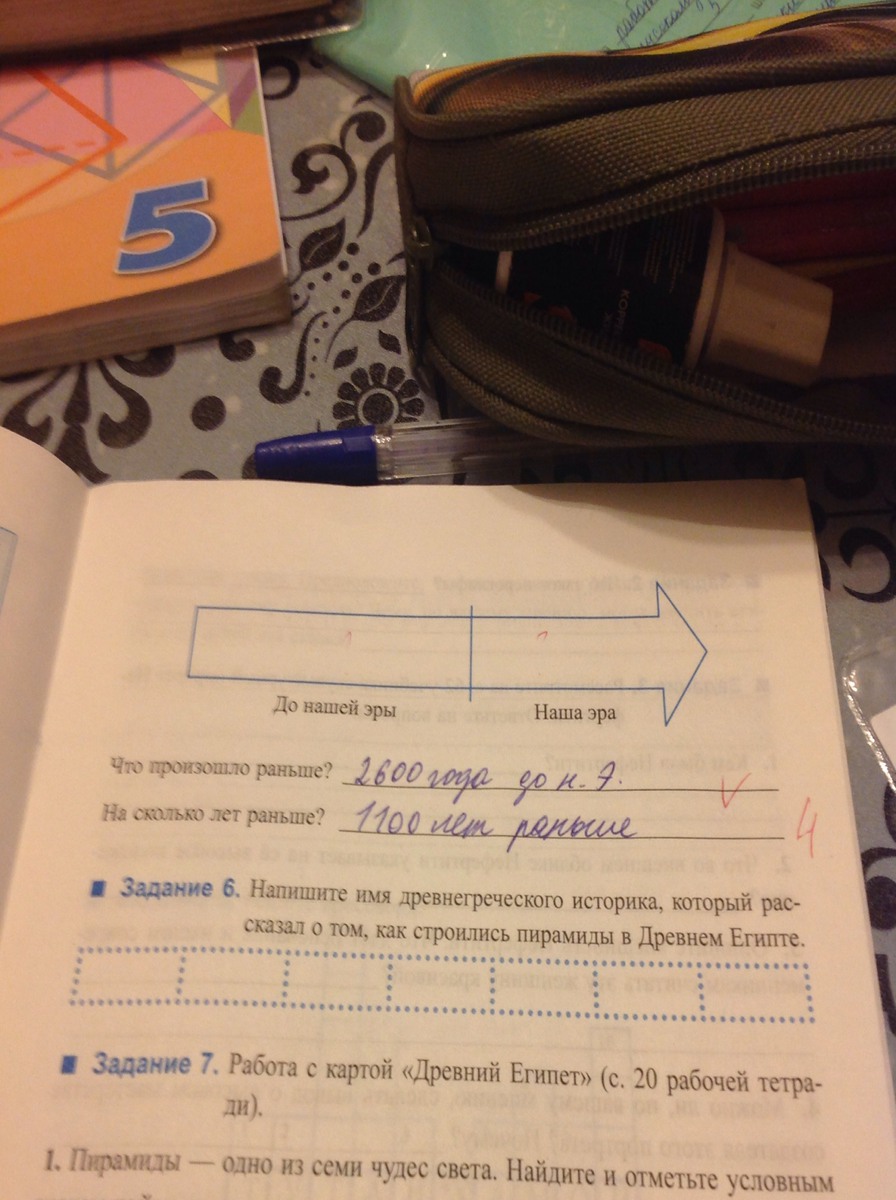 5
До нашей эры
Наша эра
Что произошло раньше? 2600 года до н. э.
На сколько лет раньше? 1100 лет раньше
4
■ Задание 6. Напишите имя древнегреческого историка, который рас-
сказал о том, как строились пирамиды в Древнем Египте.
■ Задание 7. Работа с картой «Древний Египет» (с. 20 рабочей тетра-
ди).
1. Пирамиды — одно из семи чудес света. Найдите и отметьте условным